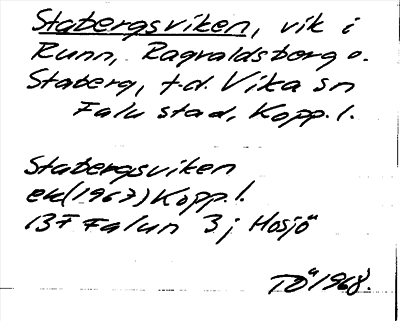 Stabergsviken, vik i
Runn, Ragvaldsberg o.
Staberg, t.d. Vika sn
Falu stad, Kopp. l.
Stabergsviken
ek (1967) Kopp. l.
13F Falun 3 j Hosjö
TÖ 1968.